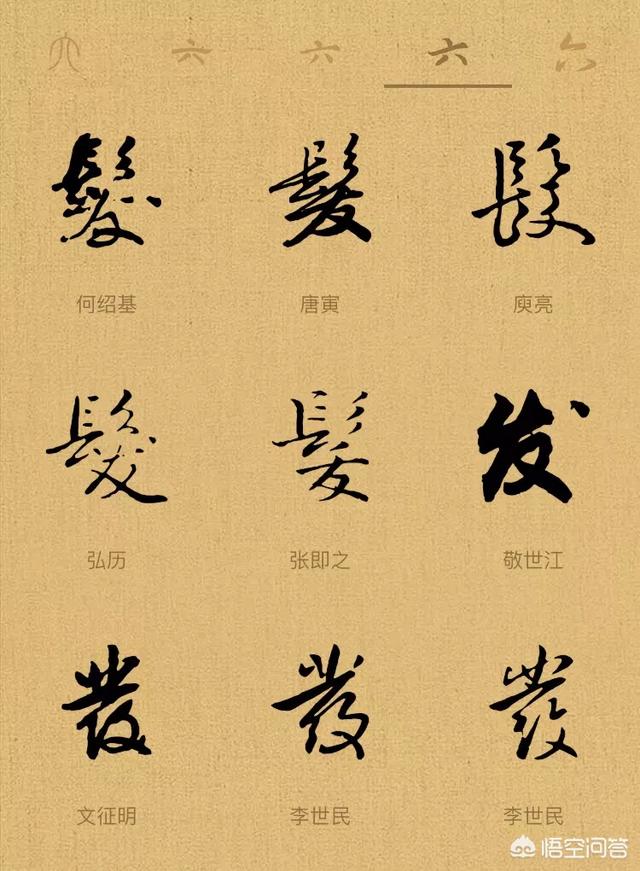 六 六 六 六 六
髮 髮 髮
何绍基 唐寅 庾亮
髮 髮 发
弘历 张即之 敬世江
發 發 發
文征明 李世民 李世民
悟空问答